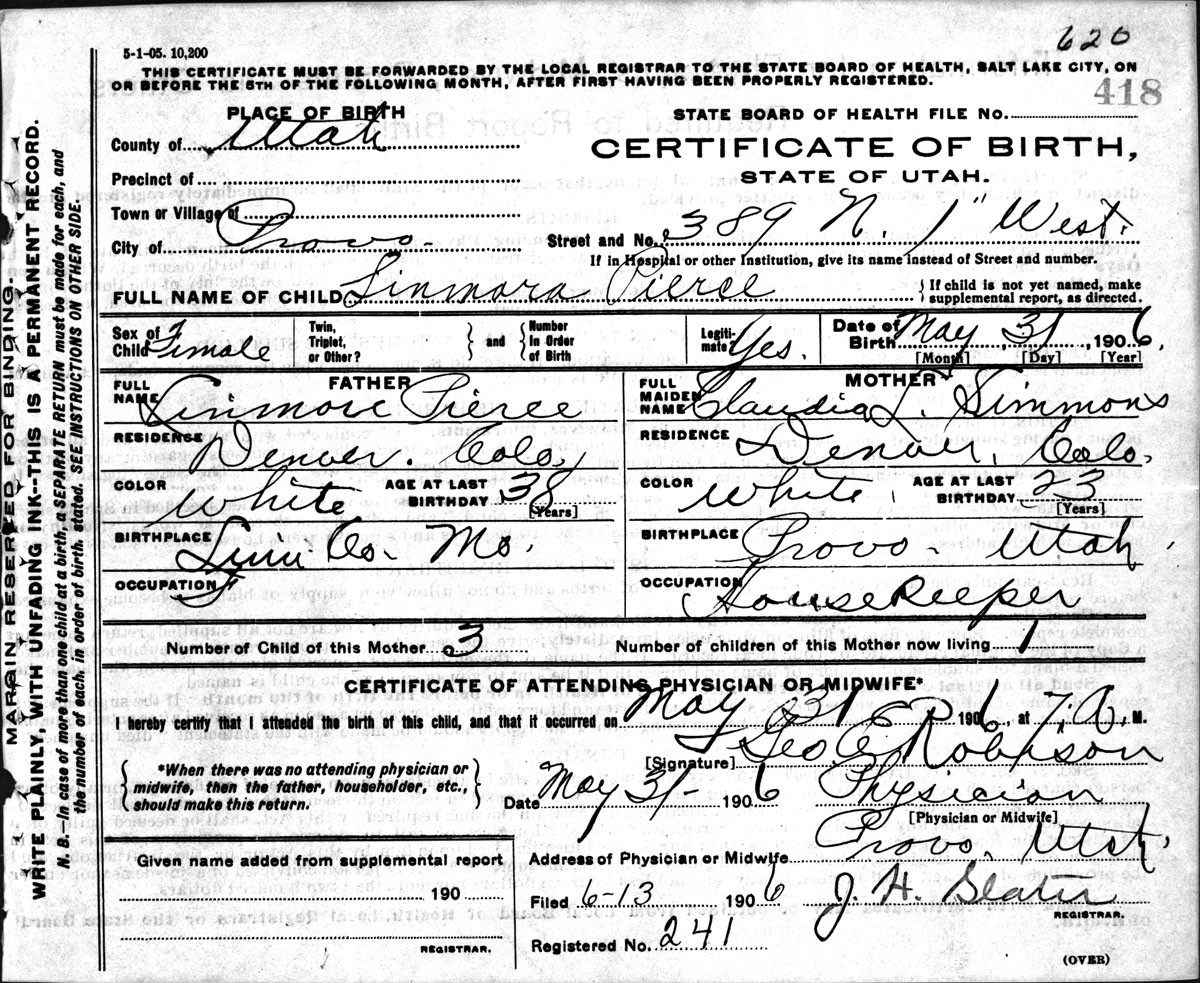 620
5-1-05. 10,200
THIS CERTIFICATE MUST BE FORWARDED BY THE LOCAL REGISTRAR TO THE STATE BOARD OF HEALTH, SALT LAKE CITY, ON
OR BEFORE THE 5TH OF THE FOLLOWING MONTH, AFTER FIRST HAVING BEEN PROPERLY REGISTERED.
418
PLACE OF BIRTH
STATE BOARD OF HEALTH FILE No.
County of Utah
CERTIFICATE OF BIRTH,
STATE OF UTAH.
Precinct of
Town or Village of
City of Provo
Street and No. 389 N. 1" West.
If in Hospital or other Institution, give its name instead of Street and number.
FULL NAME OF CHILD Linmora Pierce
If child is not yet named, make
supplemental report, as directed.
Sex of Child Female
Twin, Triplet, or Other?
and
Number In Order of Birth
Legiti-mate? Yes.
Date of Birth May 31, 1906,
[Month] [Day] [Year]
FATHER
FULL NAME Linmore Pierce
RESIDENCE Denver. Colo,
COLOR White
AGE AT LAST BIRTHDAY 38
[Years]
BIRTHPLACE Linn Co- Mo.
OCCUPATION
MOTHER
FULL MAIDEN NAME Claudia L. Simmons
RESIDENCE Denver, Colo.
COLOR White
AGE AT LAST BIRTHDAY 23
[Years]
BIRTHPLACE Provo - Utah.
OCCUPATION HouseKeeper
Number of Child of this Mother 3
Number of children of this Mother now living 1
CERTIFICATE OF ATTENDING PHYSICIAN OR MIDWIFE*
I hereby certify that I attended the birth of this child, and that it occurred on May 31 1906, at 7. A. M.
[Signature] Geo E Robison
*When there was no attending physician or
midwife, then the father, householder, etc.,
should make this return.
Date May 31- 1906
Physician
[Physician or Midwife]
Given name added from supplemental report
190
REGISTRAR.
Address of Physician or Midwife Provo, Utah.
Filed 6-13 1906
J. H.
REGISTRAR.
Registered No. 241
(OVER)
MARGIN RESERVED FOR BINDING.
WRITE PLAINLY, WITH UNFADING INK--THIS IS A PERMANENT RECORD.
N. B.—In case of more than one child at a birth, a SEPARATE RETURN must be made for each, and
the number of each, in order of birth, stated. SEE INSTRUCTIONS ON OTHER SIDE.